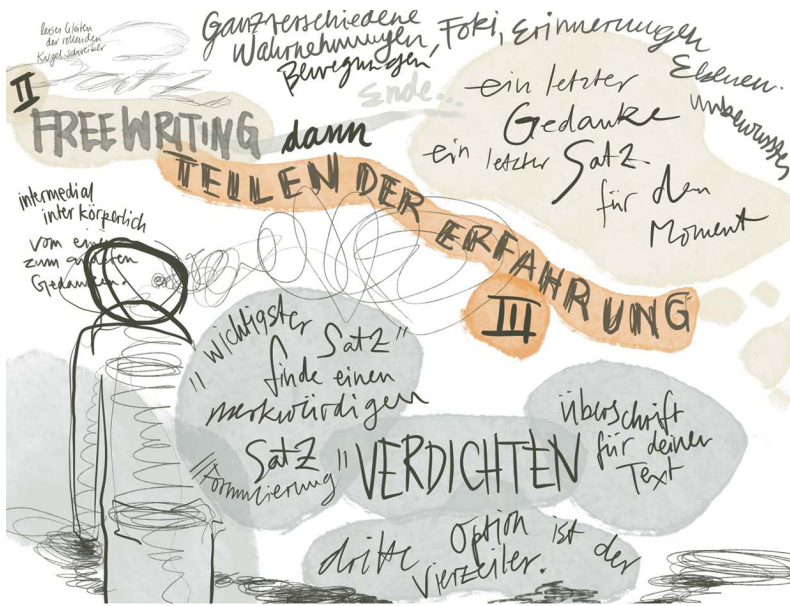 leises Gleiten
der rollenden
Kugelschreiber
Satz
Ganz verschiedene
Wahrnehmungen, Foki, Erinnerungen
Bewegungen
Ebenen.
unbewusstes
Ende...
II
FREEWRITING dann
TEILEN DER ERFAHRUNG
III
ein letzter
Gedanke
ein letzter Satz
für den
Moment
intermedial
inter körperlich
vom einen
zum anderen
Gedanken.
"wichtigster
Satz"
finde einen
merkwürdigen
Satz
"Formulierung"
VERDICHTEN
Überschrift
für deinen
Text
dritte Option ist der
Vierzeiler.